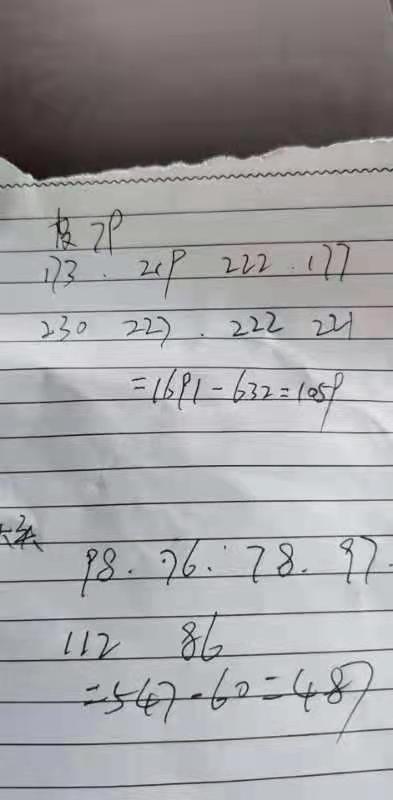 79
173 . 219 222 . 177
230 227 . 222 221
=1691-632=1059
98 . 76 . 78 . 97 .
112 86
=547-60=487